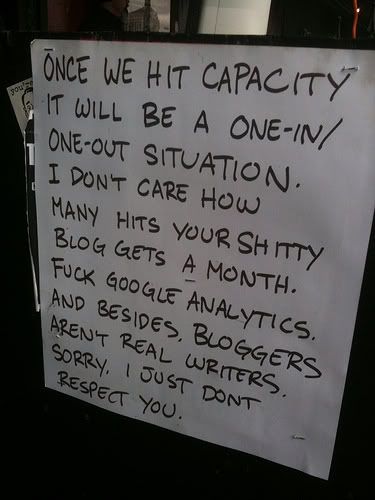 ONCE WE HIT CAPACITY
IT WILL BE A ONE-IN/
ONE-OUT SITUATION.
I DON'T CARE HOW
MANY HITS YOUR SHITTY
BLOG GETS A MONTH.
FUCK GOOGLE ANALYTICS.
AND BESIDES, BLOGGERS
AREN'T REAL WRITERS.
SORRY. I JUST DONT
RESPECT YOU.